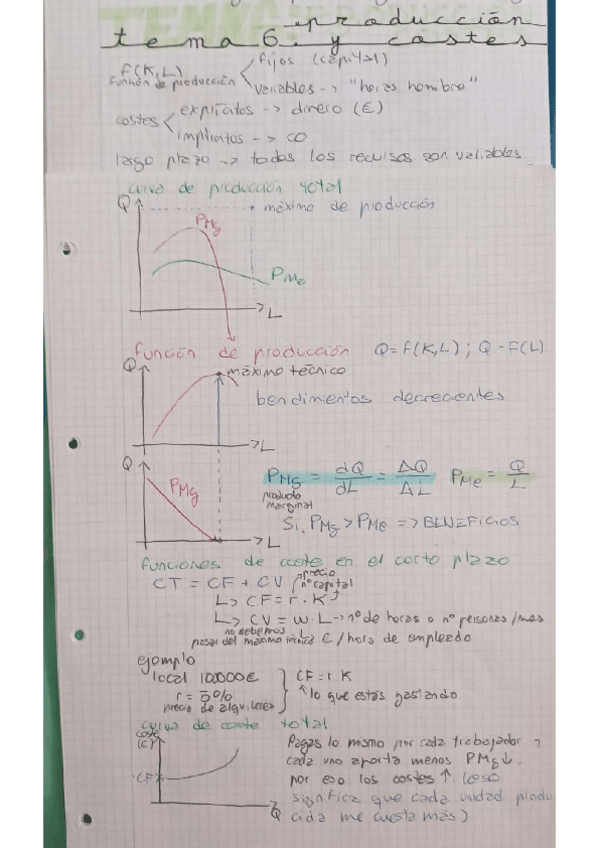 producción
tema 6. y costes
fijos (capital)
f(K,L)
función de producción
variables -> "horas hombre"
costes
explícitos -> dinero (€)
implícitos -> CO
largo plazo -> todos los recursos son variables
curva de producción total
Q
máximo de producción
PMg
PMe
L
función de producción Q=f(K,L); Q-F(L)
Q
máximo técnico
bendimientos decrecientes
L
Q
PMg
L
PMg = dQ/dL = ΔQ/ΔL PMe = Q/L
producto
marginal
Si PMg > PMe => BENEFICIOS
funciones de coste en el corto plazo
CT = CF + CV
precio
nº capital
CF = r · K
CV = w · L -> nº de horas o nº personas/mes
no debemos
pasar del máximo técnico
€/hora de empleado
ejemplo
local 100000€
r = 50%
precio de alquileres
CF = r K
lo que estás gastando
curva de coste total
coste
(C)
CF
Q
Pagas lo mismo por cada trabajador y
cada uno aporta menos PMg↓.
por eso los costes ↑ (eso
significa que cada unidad produ
cida me cuesta más)